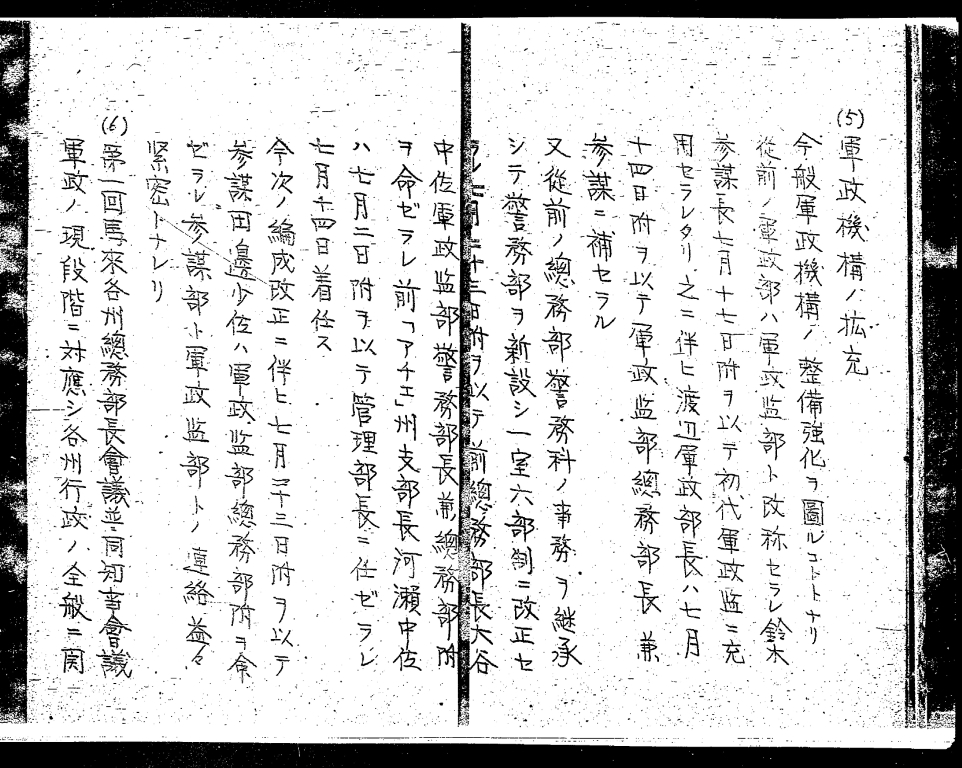 (5)
軍政機構ノ拡充
今般軍政機構ノ整備強化ヲ圖ルコトトナリ
從前ノ軍政部ハ軍政監部ト改称セラレ鈴木
参謀長七月十七日附ヲ以テ初代軍政監ニ充
用セラレタリ、之ニ伴ヒ渡辺軍政部長ハ七月
十四日附ヲ以テ軍政監部總務部長兼
参謀ニ補セラル
又從前ノ總務部警務科ノ事務ヲ継承
シテ警務部ヲ新設シ一室六部制ニ改正セ
ラレ七月二十三日附ヲ以テ前總務部長大谷
中佐軍政監部警務部長兼總務部附
ヲ命ゼラレ前「アチエ」州支部長河瀬中佐
ハ七月二日附ヲ以テ管理部長ニ任ゼラレ
七月十四日着任ス
今次ノ編成改正ニ伴ヒ七月二十三日附ヲ以テ
参謀田邊少佐ハ軍政監部總務部附ヲ命
ゼラレ参謀部ト軍政監部トノ連絡益々
緊密トナレリ
(6)
第一回馬來各州總務部長會議並同知事會議
軍政ノ現段階ニ対應シ各州行政ノ全般ニ関